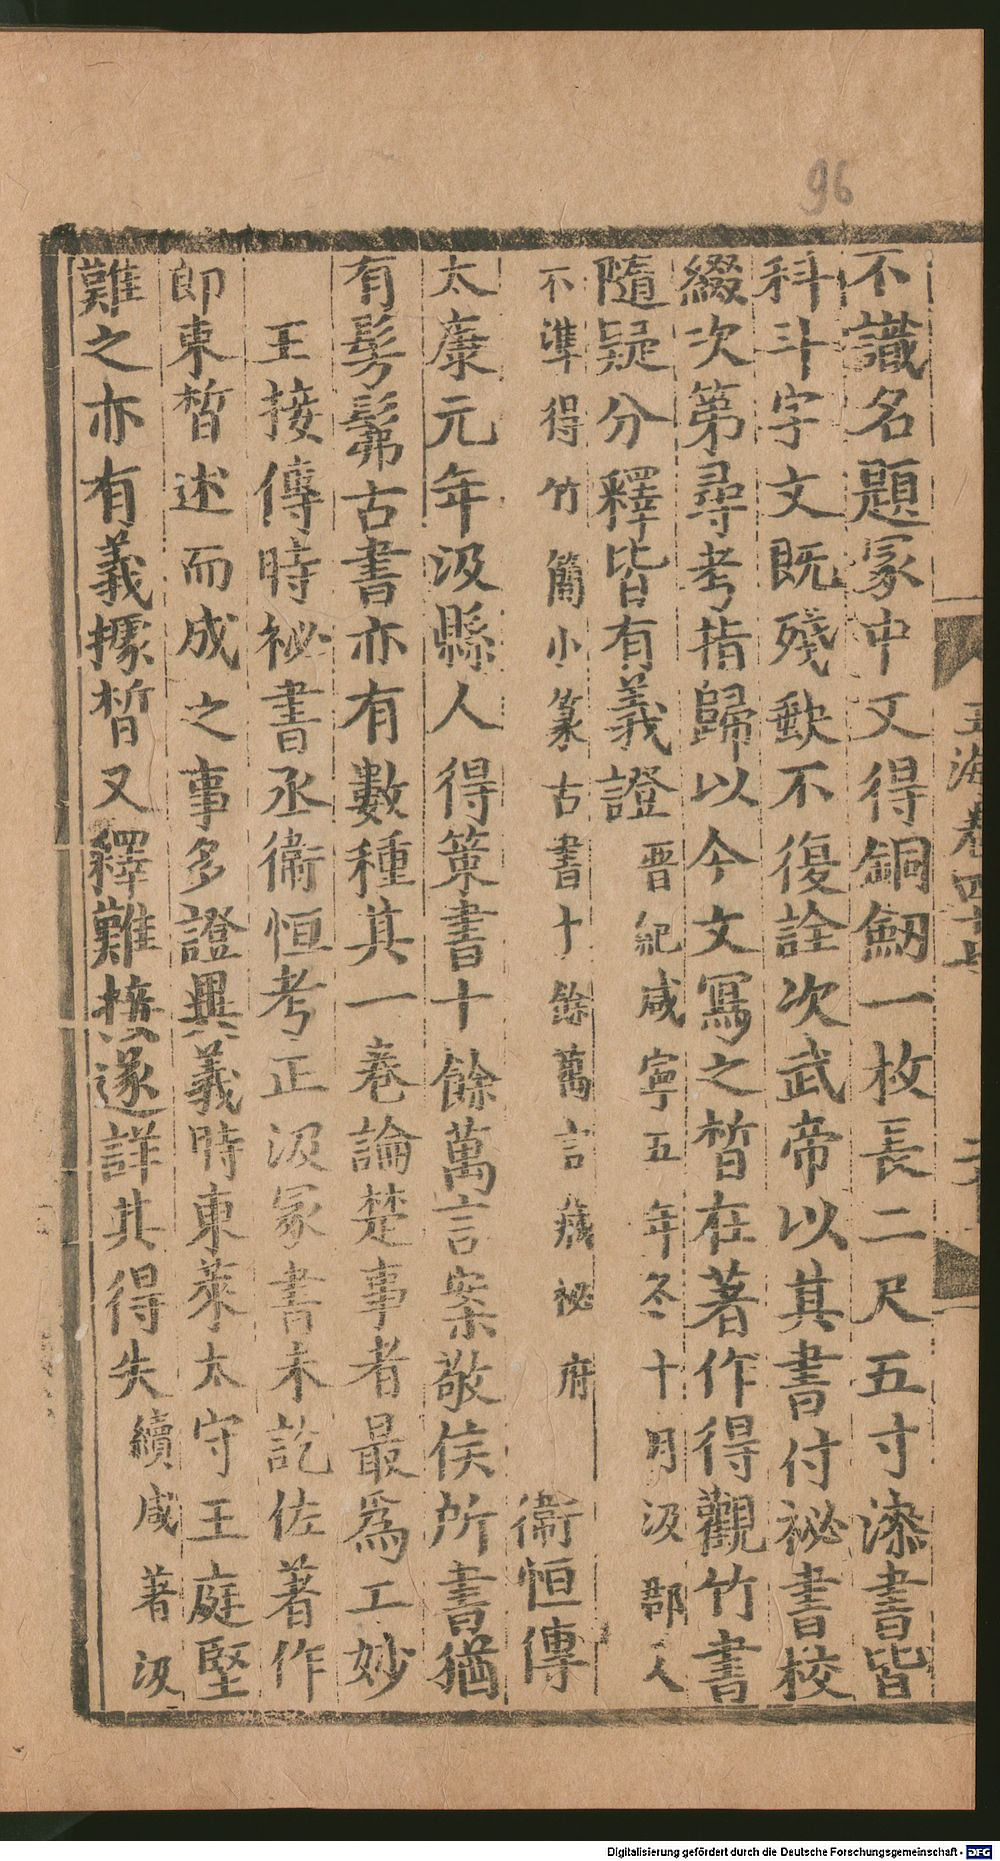 96
玉海卷四十七
不識名題冢中又得銅劒一枚長二尺五寸漆書皆
科斗字文既殘缺不復詮次武帝以其書付祕書校
綴次第尋考指歸以今文寫之晳在著作得觀竹書
隨疑分釋皆有義證 晋紀咸寧五年冬十月汲郡人
不準得竹簡小篆古書十餘萬言藏祕府 衞恒傳
太康元年汲縣人得策書十餘萬言案敬侯所書猶
有髣髴古書亦有數種其一卷論楚事者最爲工妙
王接傳時祕書丞衞恒考正汲冢書未訖佐著作
郎束晳述而成之事多證異義時東萊太守王庭堅
難之亦有義據晳又釋難接遂詳其得失 續咸著汲
Digitalisierung gefördert durch die Deutsche Forschungsgemeinschaft - DFG